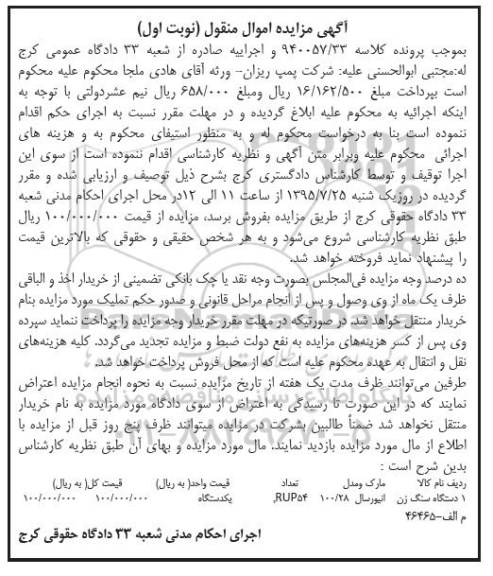 آگهی مزایده اموال منقول (نوبت اول)
بموجب پرونده کلاسه ۹۴۰۰۵۷/۳۳ و اجراییه صادره از شعبه ۳۳ دادگاه عمومی کرج
له:مجتبی ابوالحسنی علیه: شرکت پمپ ریزان- ورثه آقای هادی ملجا محکوم علیه محکوم
است بپرداخت مبلغ ۱۶/۱۶۲/۵۰۰ ریال ومبلغ ۶۵۸/۰۰۰ ریال نیم عشردولتی با توجه به
اینکه اجرائیه به محکوم علیه ابلاغ گردیده و در مهلت مقرر نسبت به اجرای حکم اقدام
ننموده است بنا به درخواست محکوم له و به منظور استیفای محکوم به و هزینه های
اجرائی محکوم علیه وبرابر متن آگهی و نظریه کارشناسی اقدام ننموده است از سوی این
اجرا توقیف و توسط کارشناس دادگستری کرج بشرح ذیل توصیف و ارزیابی شده و مقرر
گردیده در روزیک شنبه ۱۳۹۵/۷/۲۵ از ساعت ۱۱ الی ۱۲در محل اجرای احکام مدنی شعبه
۳۳ دادگاه حقوقی کرج از طریق مزایده بفروش برسد، مزایده از قیمت ۱۰۰/۰۰۰/۰۰۰ ریال
طبق نظریه کارشناسی شروع می‌شود و به هر شخص حقیقی و حقوقی که بالاترین قیمت
را پیشنهاد نماید فروخته خواهد شد.
ده درصد وجه مزایده فی‌المجلس بصورت وجه نقد یا چک بانکی تضمینی از خریدار اخذ و الباقی
ظرف یک ماه از وی وصول و پس از انجام مراحل قانونی و صدور حکم تملیک مورد مزایده بنام
خریدار منتقل خواهد شد. در صورتیکه در مهلت مقرر خریدار وجه مزایده را پرداخت ننماید سپرده
وی پس از کسر هزینه‌های مزایده به نفع دولت ضبط و مزایده تجدید می‌گردد. کلیه هزینه‌های
نقل و انتقال به عهده محکوم علیه است که از محل فروش پرداخت خواهد شد.
طرفین می‌توانند ظرف مدت یک هفته از تاریخ مزایده نسبت به نحوه انجام مزایده اعتراض
نمایند که در این صورت تا رسیدگی به اعتراض از سوی دادگاه مورد مزایده به نام خریدار
منتقل نخواهد شد ضمناً طالبین بشرکت در مزایده میتوانند ظرف پنج روز قبل از مزایده با
اطلاع از مال مورد مزایده بازدید نمایند. مال مورد مزایده و بهای آن طبق نظریه کارشناس
بدین شرح است :
ردیف نام کالا مارک ومدل تعداد قیمت واحد(به ریال) قیمت کل(به ریال)
۱ دستگاه سنگ زن انیورسال ۱۰۰/۲۸ RUP۵۴, یکدستگاه ۱۰۰/۰۰۰/۰۰۰ ۱۰۰/۰۰۰/۰۰۰
م الف-۴۶۴۶۵
اجرای احکام مدنی شعبه ۳۳ دادگاه حقوقی کرج